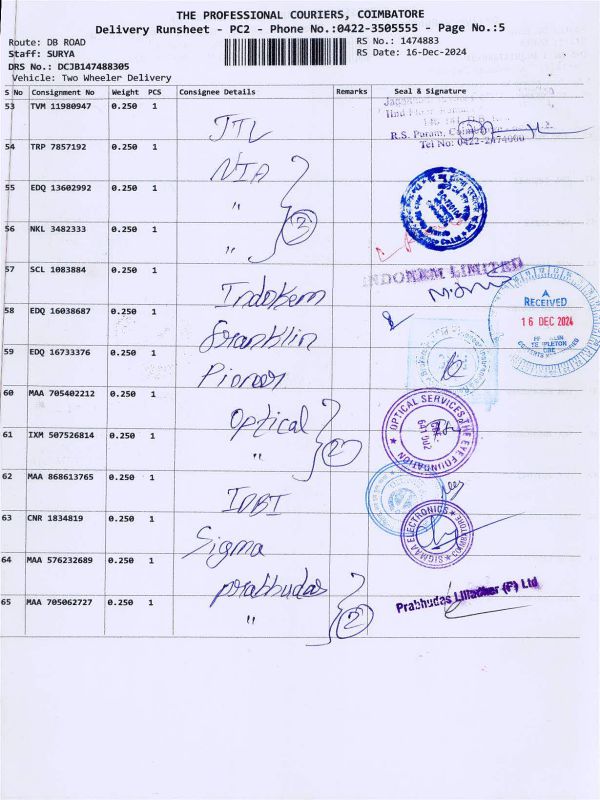 THE PROFESSIONAL COURIERS, COIMBATORE
Delivery Runsheet - PC2 - Phone No.:0422-3505555 - Page No.:5
Route: DB ROAD
RS No.: 1474883
Staff: SURYA
RS Date: 16-Dec-2024
DRS No.: DCJB147488305
Vehicle: Two Wheeler Delivery
S No Consignment No Weight PCS Consignee Details Remarks Seal & Signature
53 TVM 11980947 0.250 1 JTV
R.S. Puram,
Tel No: 0422-2474000
54 TRP 7857192 0.250 1 NIA
55 EDQ 13602992 0.250 1 "
56 NKL 3482333 0.250 1 "
3
57 SCL 1083884 0.250 1 Indokem
INDOKEM LIMITED
58 EDQ 16038687 0.250 1 Franklin
RECEIVED
16 DEC 2024
59 EDQ 16733376 0.250 1 Pioneer
60 MAA 705402212 0.250 1 Optical
OPTICAL SERVICES THE EYE FOUNDATION
641 002
61 IXM 507526814 0.250 1 "
2
62 MAA 868613765 0.250 1 IDBI
63 CNR 1834819 0.250 1 Sigma
SIGMAA ELECTRONICS COIMBATORE
64 MAA 576232689 0.250 1 prabhudas
65 MAA 705062727 0.250 1 "
2
Prabhudas Lilladher (P) Ltd